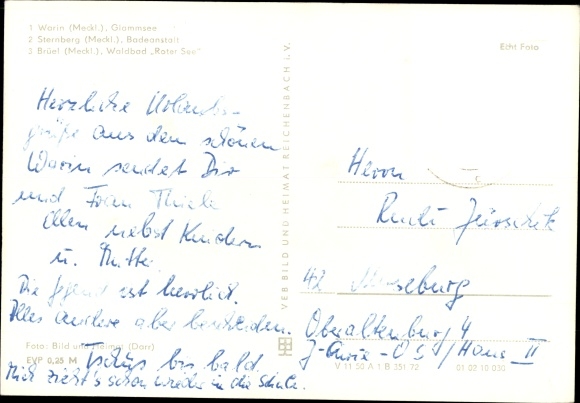 1 Warin (Meckl.), Glammsee
2 Sternberg (Meckl.), Badeanstalt
3 Brüel (Meckl.), Waldbad „Roter See"
Echt Foto
Herzliche Urlaubs-
grüße aus dem schönen
Warin sendet Dir
und Frau Thiele
Ellen nebst Kindern
u. Mutter
Die Gegend ist herrlich.
Alles andere aber bescheiden.
Tschüs bis bald.
Mich zieht's schon wieder in die Schule.
Foto: Bild und Heimat (Darr)
EVP 0,25 M
VEB BILD UND HEIMAT REICHENBACH i. V.
Herrn
42 Merseburg
Oberaltenburg 4
Haus II
V 11 50 A 1 B 351 72
01 02 10 030